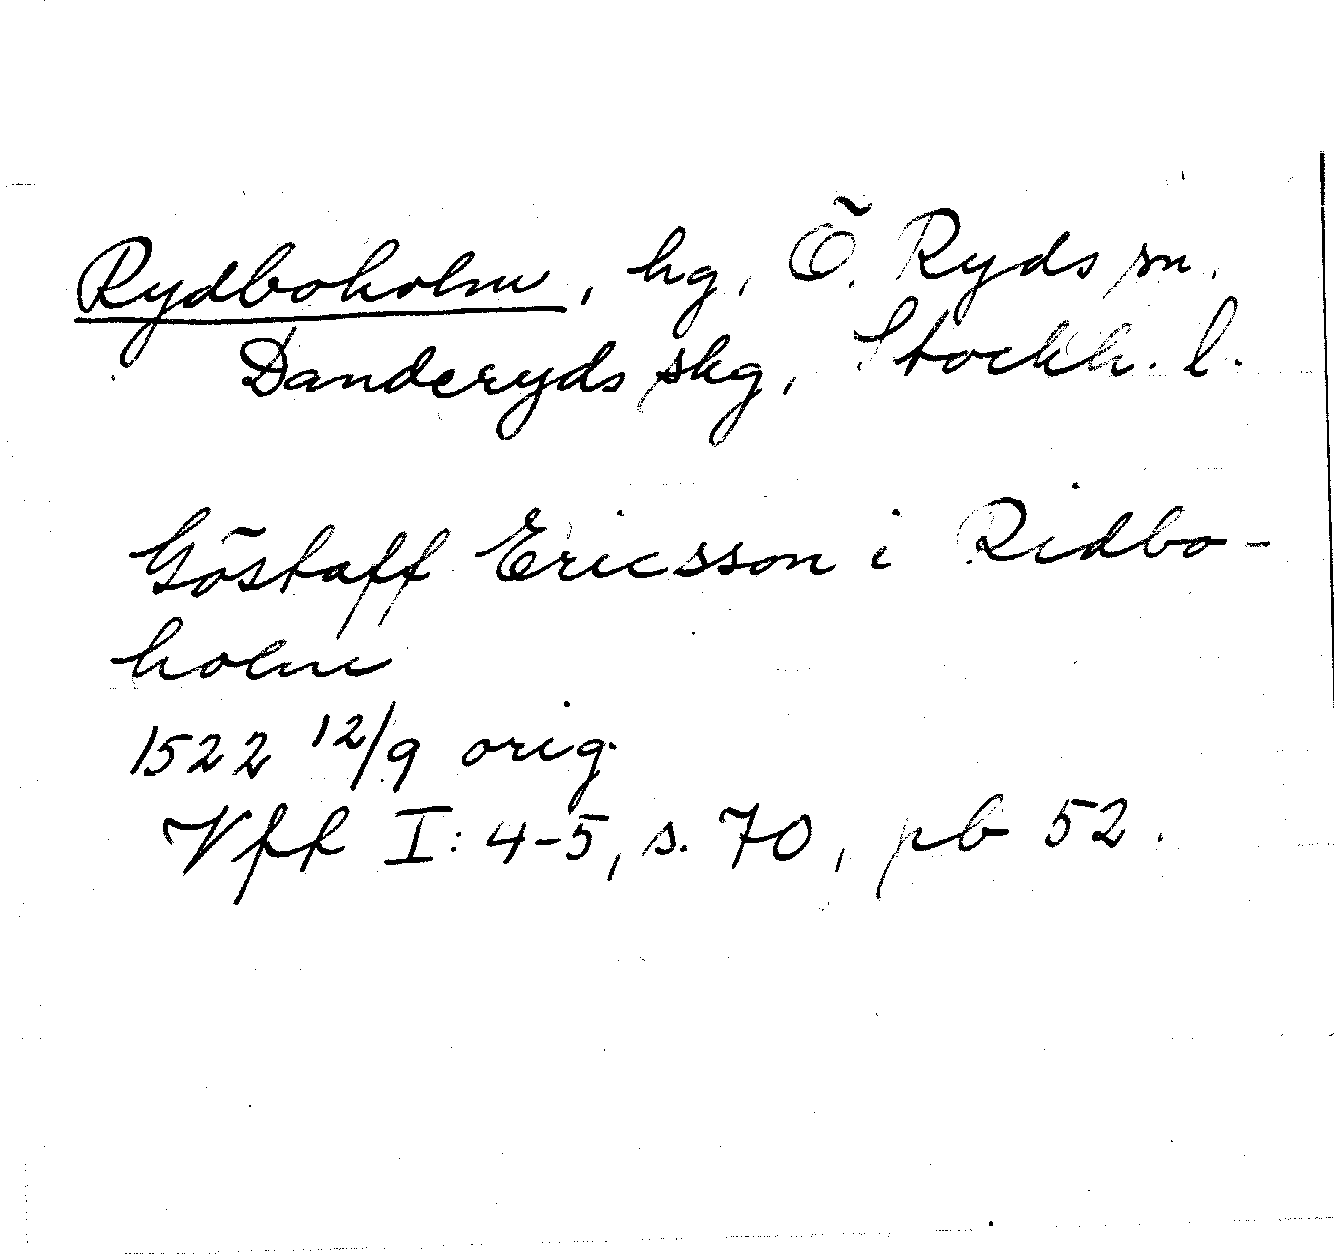 Rydboholm, hg, Ö. Ryds sn.
Danderyds skg, Stockh. l.
Göstaff Ericsson i Ridbo-
holm
1522 12/9 orig.
Vff I: 4-5, s. 70, pb 52.